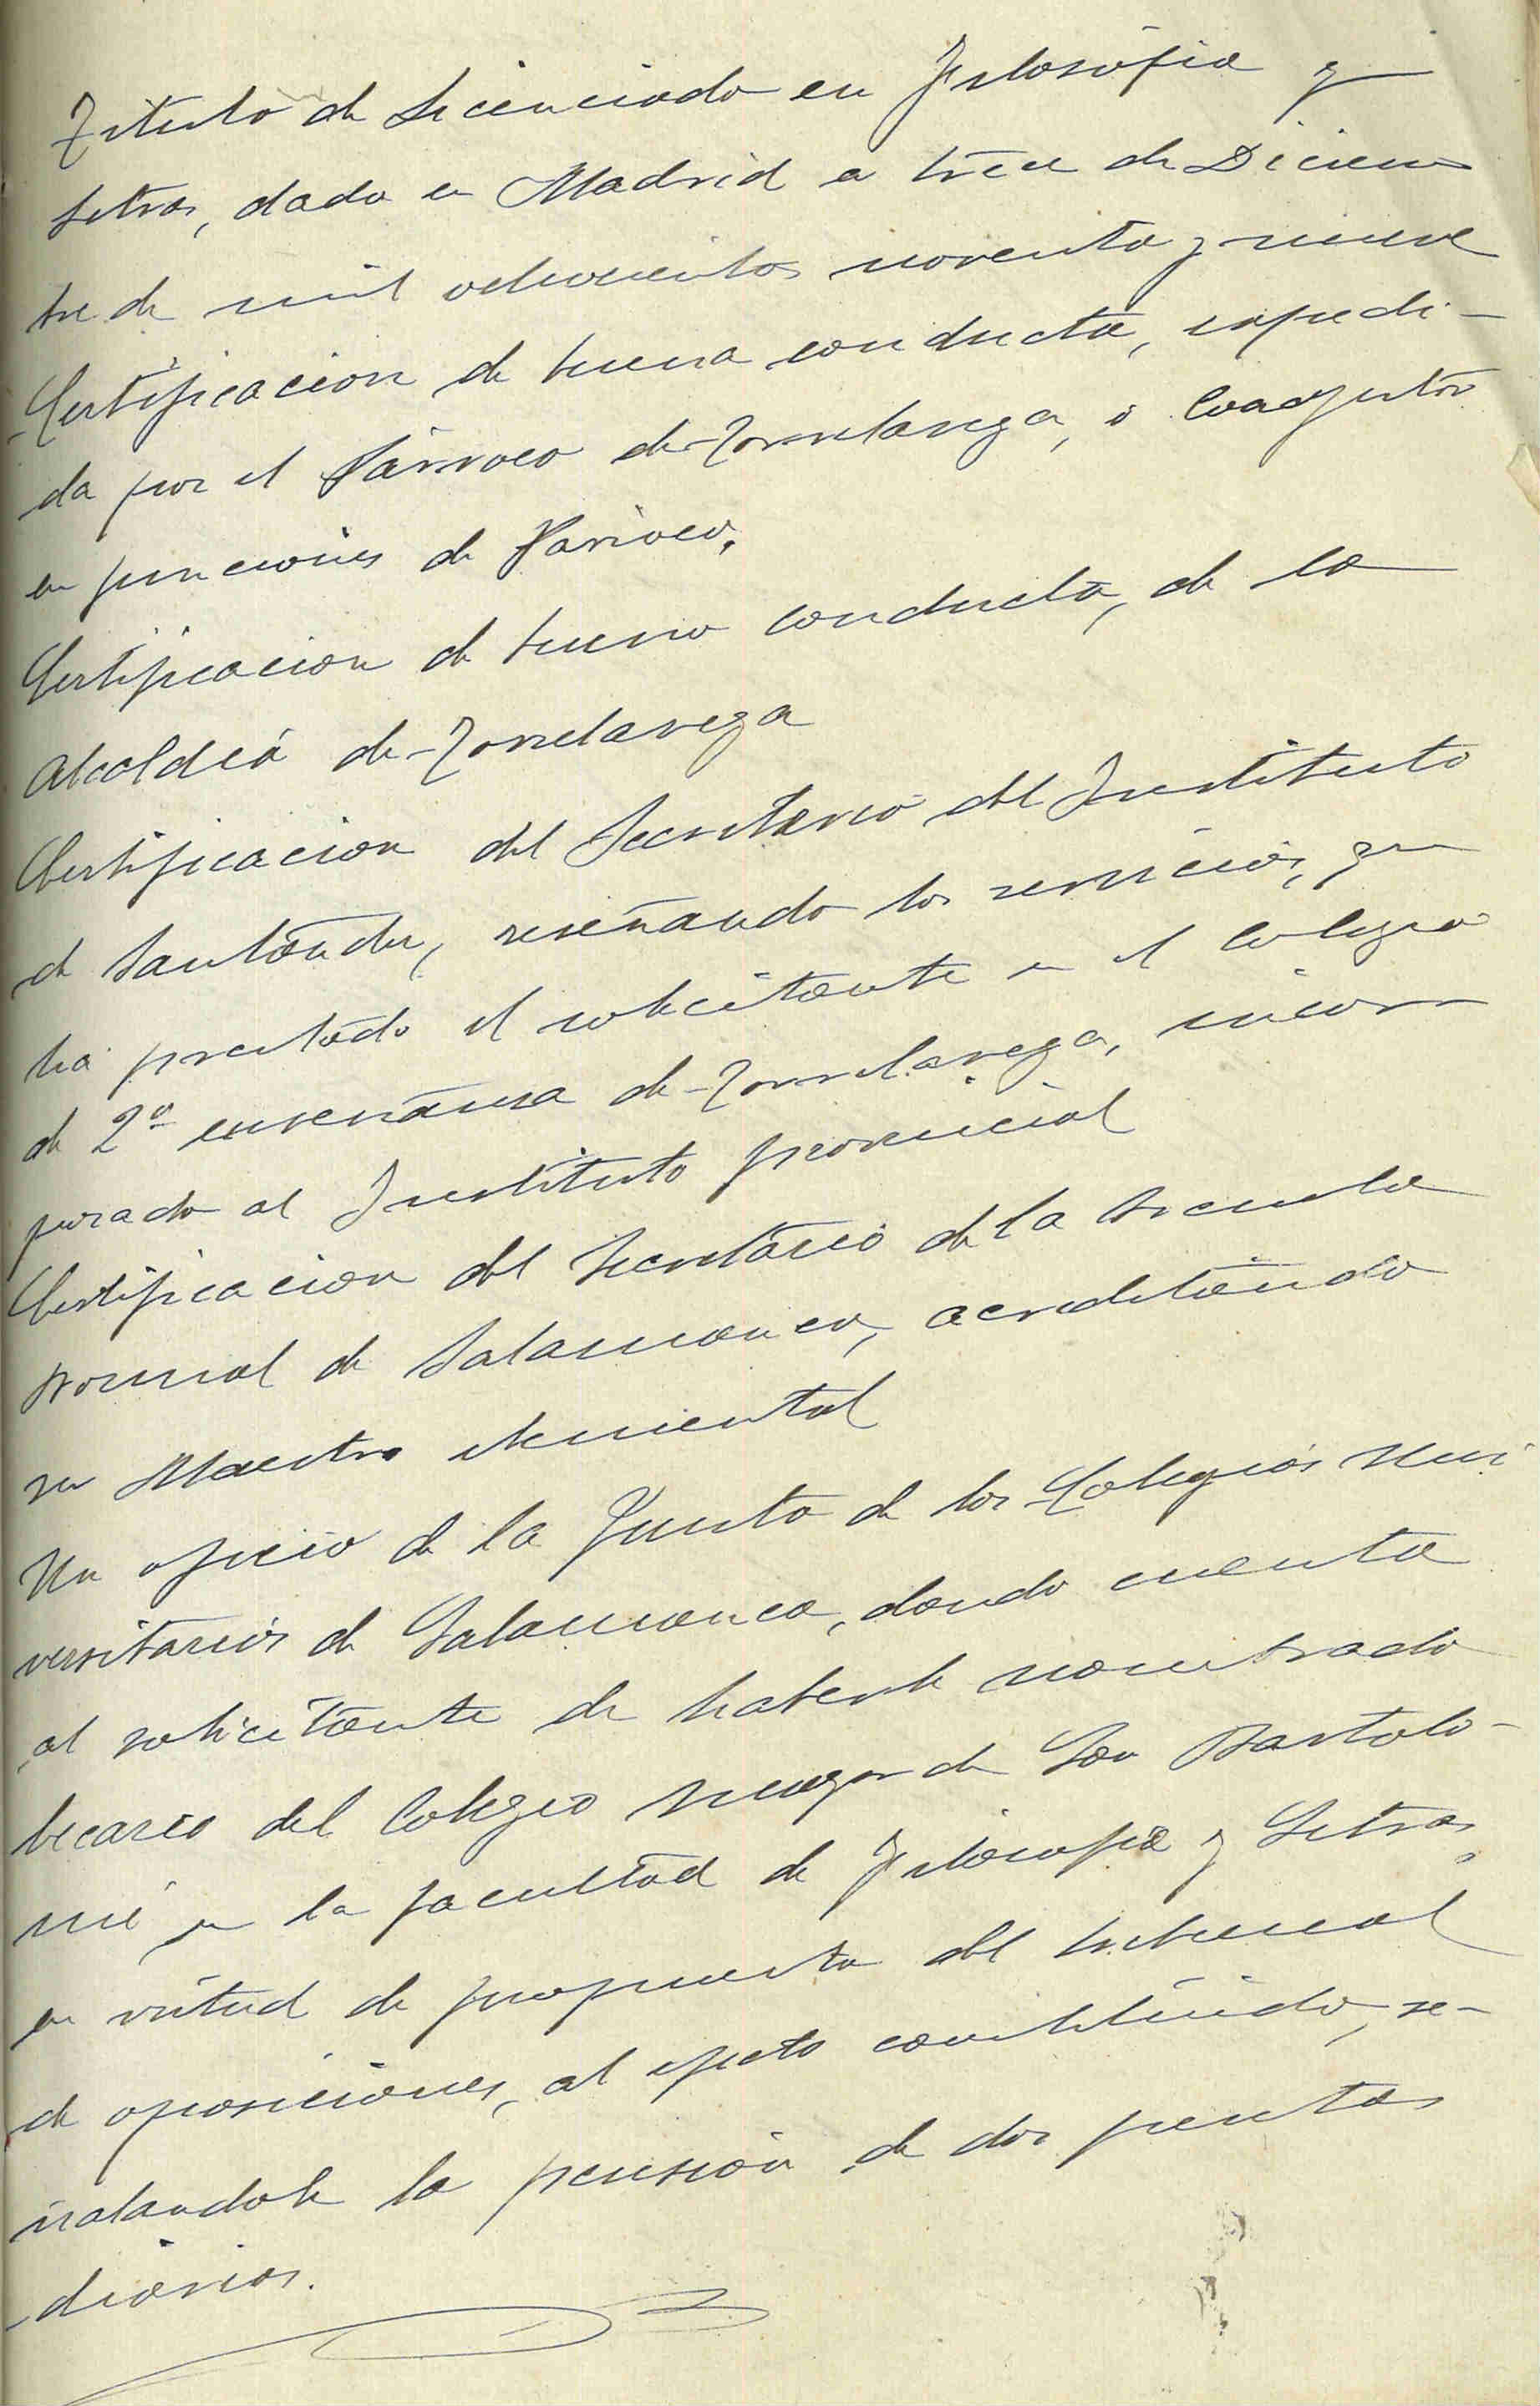 Titulo de Licenciado en Filosofia y
Letras, dado en Madrid a trece de Diciem
bre de mil ochocientos noventa y nueve
Certificacion de buena conducta, expedi-
da por el Párroco de Torrelavega, ó Coadjutor
en funciones de Parroco.
Certificacion de buena conducta, de la
Alcaldía de Torrelavega
Certificacion del Secretario del Instituto
de Santander, reseñando los servicios, que
ha prestado el solicitante en el Colegio
de 2ª enseñanza de Torrelavega, incor
porado al Instituto provincial
Certificacion del Secretario de la Escuela
Normal de Salamanca, acreditando
ser Maestro elemental
Un oficio de la Junta de los Colegios Uni
versitarios de Salamanca, dando cuenta
al solicitante de haberle nombrado
becario del Colegio mayor de San Bartolo-
mé en la facultad de Filosofia y Letras,
en virtud de propuesta del tribunal
de oposiciones, al efecto constituido, se-
ñalandole la pensión de dos pesetas
diarias.